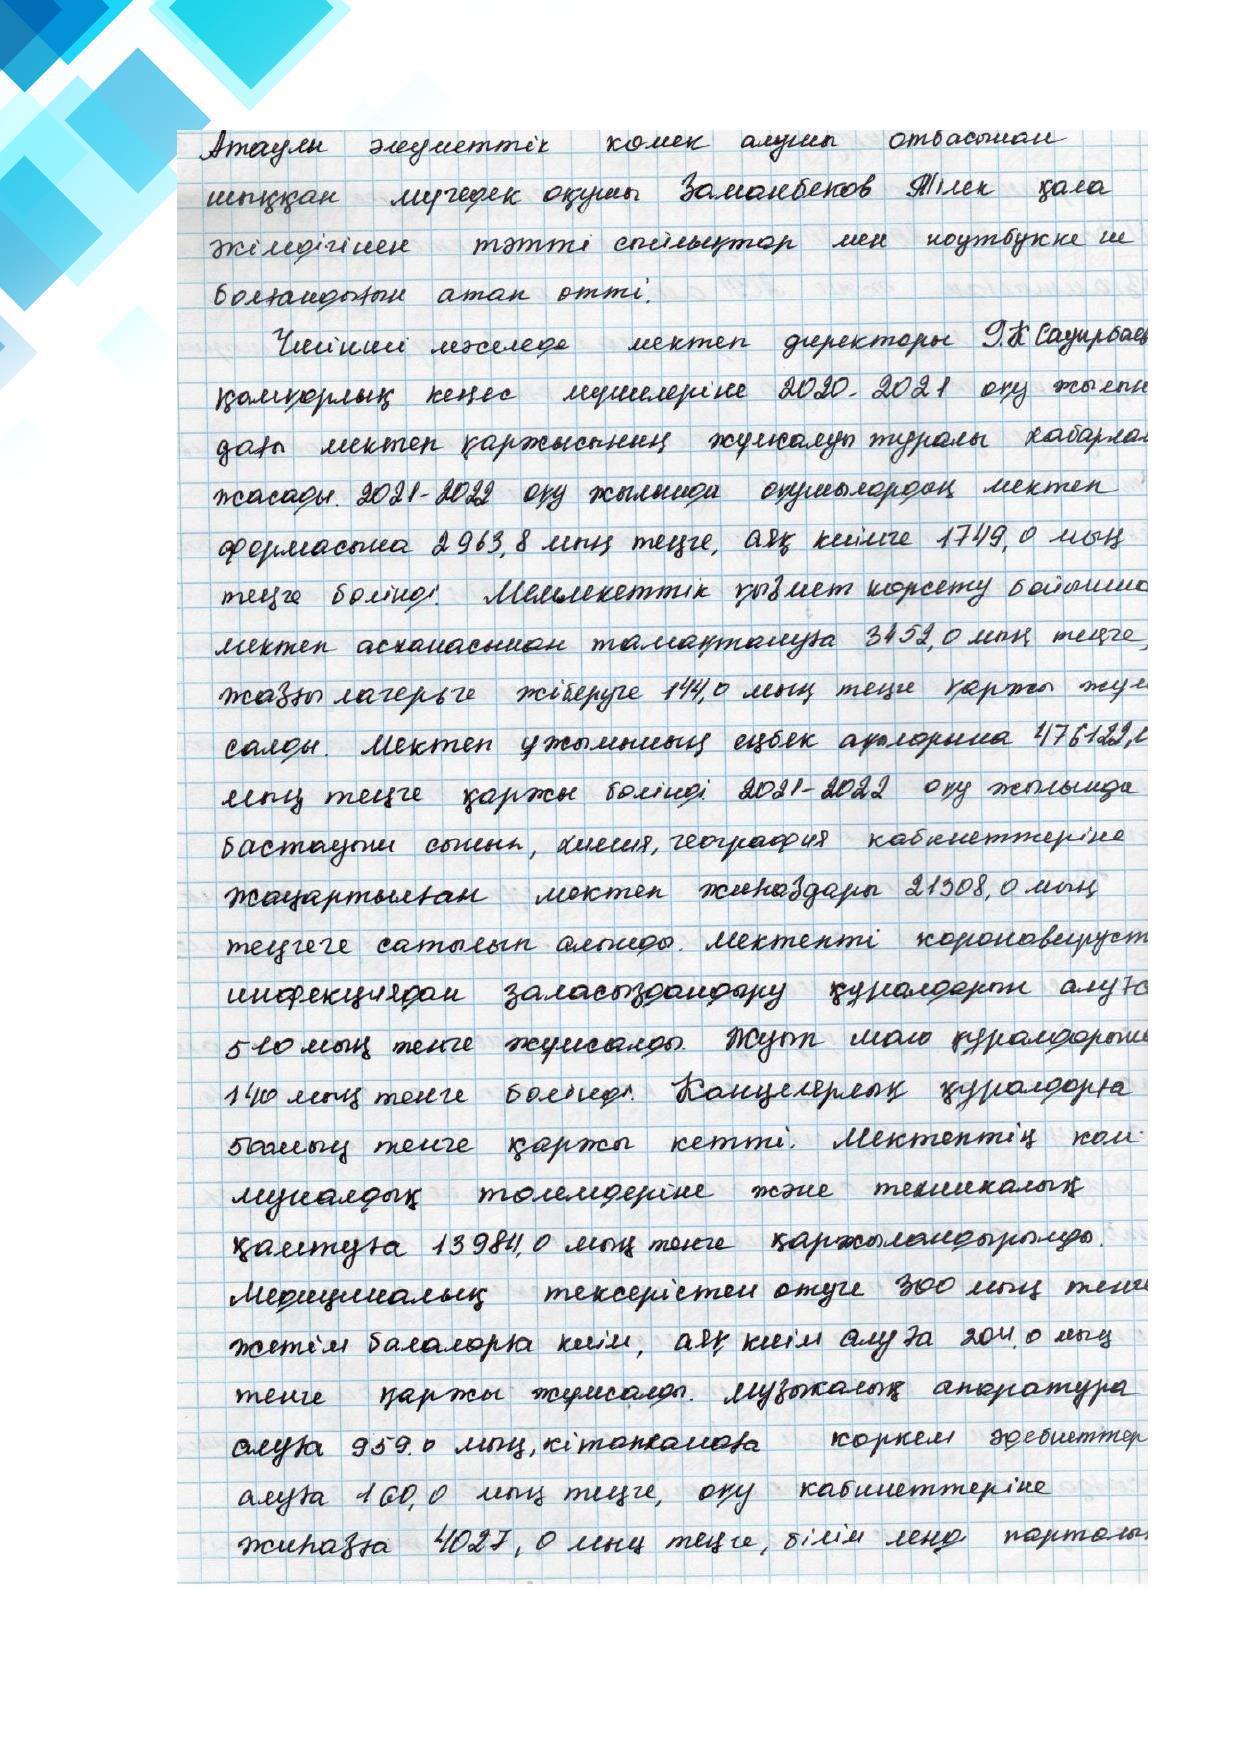 Атаулы әлеуметтік көмек алушы отбасынан
шыққан мүгедек оқушы Заманбеков Тілек қала
әкімдігінен тәтті сыйлықтар мен ноутбукке ие
болғандығын атап өтті.
Үшінші мәселеде мектеп директоры Г.К Сауырбае
қамқорлық кеңес мүшелеріне 2020-2021 оқу жылын
дағы мектеп қаржысының жұмсалуы туралы хабарлам
жасады. 2021-2022 оқу жылында оқушылардың мектеп
формасына 2963,8 мың теңге, аяқ киімге 1749,0 мың
теңге бөлінді. Мемлекеттік қызмет көрсету бойынша
мектеп асханасынан тамақтануға 3452,0 мың теңге,
жазғы лагерьге жіберуге 144,0 мың теңге қаржы жұм
салды. Мектеп ұжымының еңбек ақыларына 476122,
мың теңге қаржы бөлінді 2021-2022 оқу жылында
бастауыш сынып, химия, география кабинеттеріне
жаңартылған мектеп жиһаздары 21308,0 мың
теңгеге сатылып алынды. Мектепті коронавируст
инфекциядан заласыздандыру құралдарын алуға
510 мың тенге жұмсалды. Жуып маю құралдарына
140 мың тенге бөлінді. Канцелярлық құралдарға
500мың тенге қаржы кетті. Мектептің ком-
муналдық төлемдеріне және техникалық
қамтуға 13984,0 мың тенге қаржыландырылды.
Медициналық тексерістен өтуге 300 мың тенге
жетім балаларға киім, аяқ киім алуға 204,0 мың
тенге қаржы жұмсалды. Музыкалық апаратура
алуға 959.0 мың, кітапханаға көркем әдебиеттер
алуға 160,0 мың теңге, оқу кабинеттеріне
жиһазға 4027,0 мың теңге, білім ленд порталы